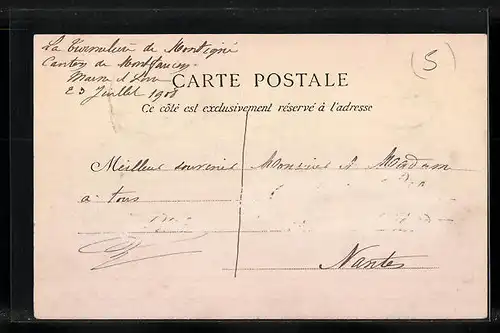 La Turmelière de Montigné
Canton de Montfaucon
Maine et Loire
23 Juillet 1908
(5)
CARTE POSTALE
Ce côté est exclusivement réservé à l'adresse
Meilleur souvenir
à tous
Monsieur et Madam
Nantes